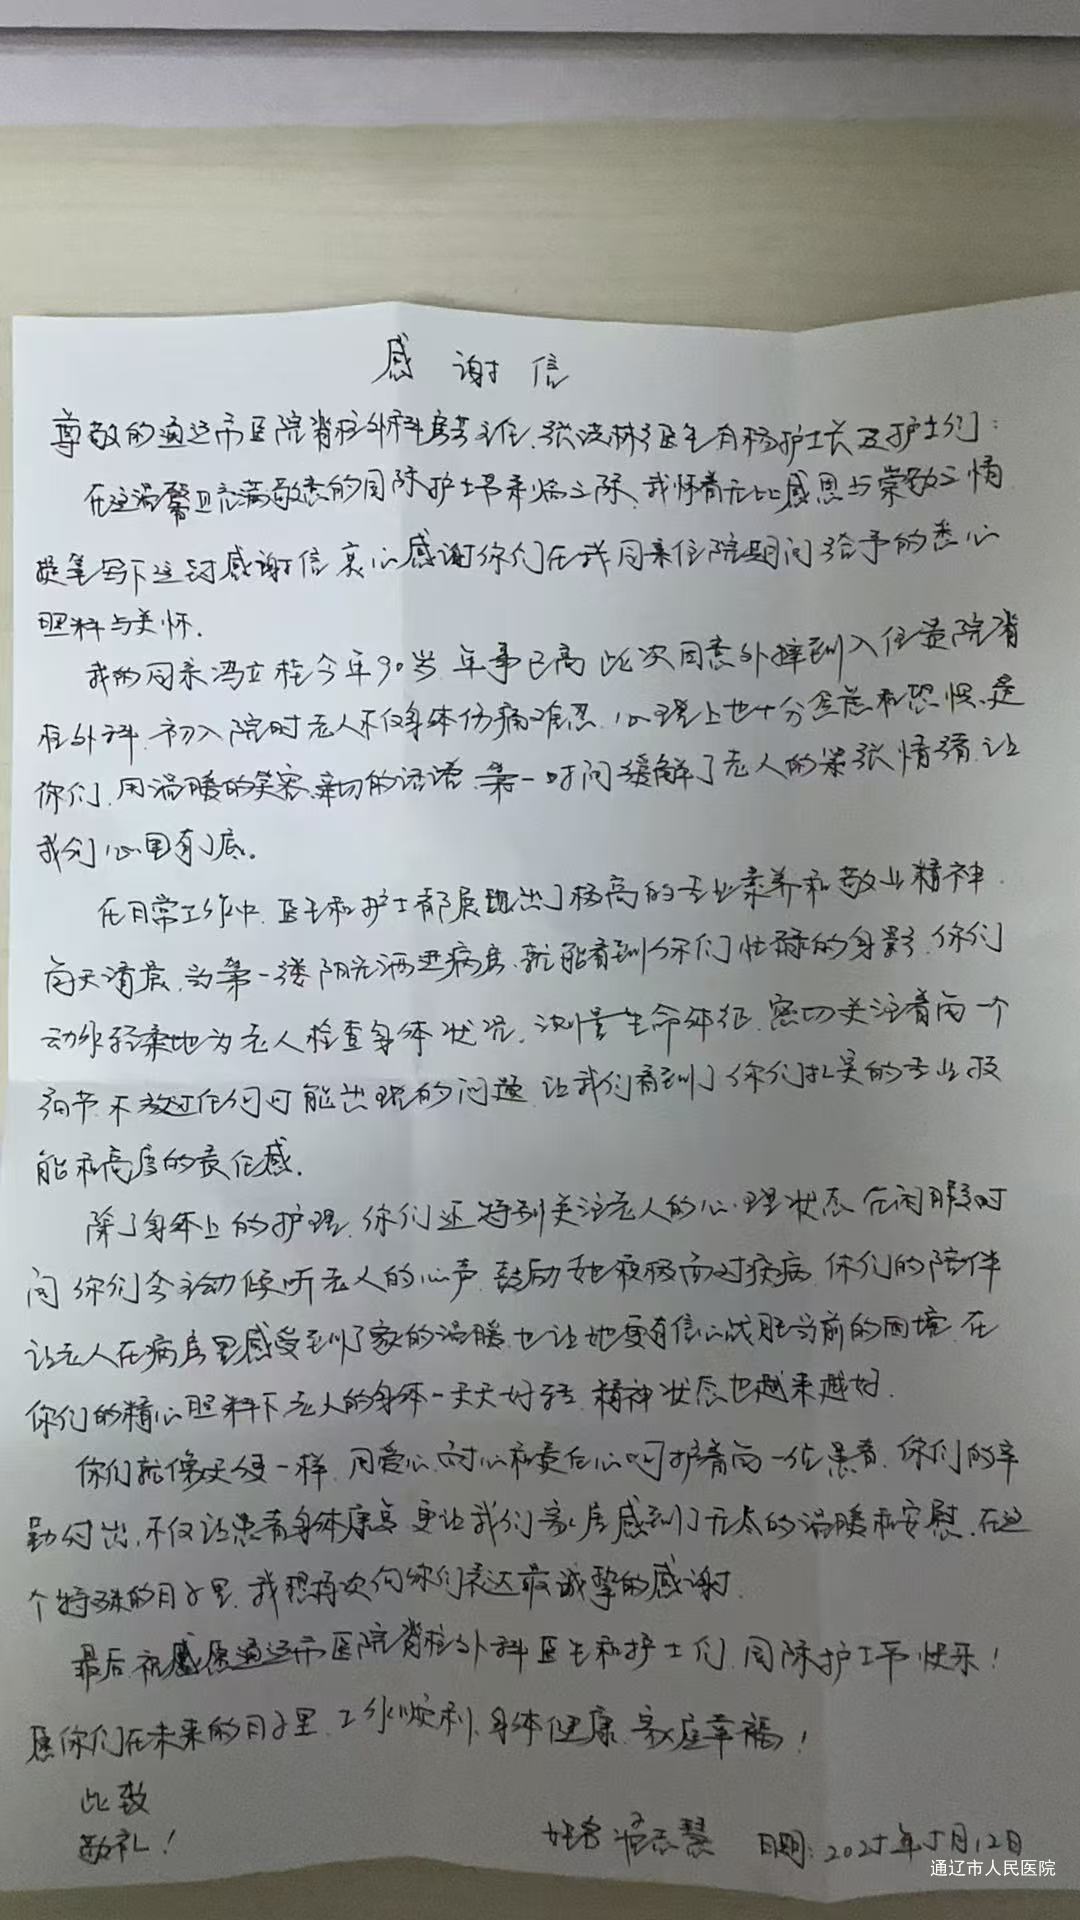 感谢信
尊敬的通辽市医院脊柱外科房主任、张洪林医生有杨护士长及护士们：
在这温馨且充满敬意的国际护士节来临之际、我怀着无比感恩与崇敬之情
提笔写下这封感谢信衷心感谢你们在我母亲住院期间给予的悉心
照料与关怀.
我的母亲冯立桂今年90岁年事已高此次因意外摔到入住贵院脊
柱外科.初入院时老人不仅身体伤痛难忍.心理上也十分焦虑和恐惧.是
你们.用温暖的笑容、亲切的话语.第一时间缓解了老人的紧张情绪.让
我们心里有了底。
在日常工作中.医生和护士都展现出了极高的专业素养和敬业精神.
每天清晨.当第一缕阳光洒进病房.就能看到你们忙碌的身影.你们
动作轻柔地为老人检查身体状况.测量生命体征.密切关注着每一个
细节.不放过任何可能出现的问题.让我们看到了你们扎实的专业技
能和高度的责任感.
除了身体上的护理.你们还特别关注老人的心理状态.在闲暇时
间你们会主动倾听老人的心声.鼓励她积极面对疾病.你们的陪伴
让老人在病房里感受到了家的温暖.也让她更有信心战胜当前的困境.在
你们的精心照料下老人的身体一天天好转.精神状态也越来越好.
你们就像天使一样.用爱心.耐心和责任心呵护着每一位患者.你们的辛
勤付出.不仅让患者身体康复更让我们家属感到了无太的温暖和安慰.在这
个特殊的日子里.我想再次向你们表达最诚挚的感谢.
最后祝愿通辽市医院脊柱外科医生和护士们.国际护士节快乐！
愿你们在未来的日子里.工作顺利、身体健康.家庭幸福！
此致
敬礼！
姓名 志慧 日期：2025年5月12日
通辽市人民医院